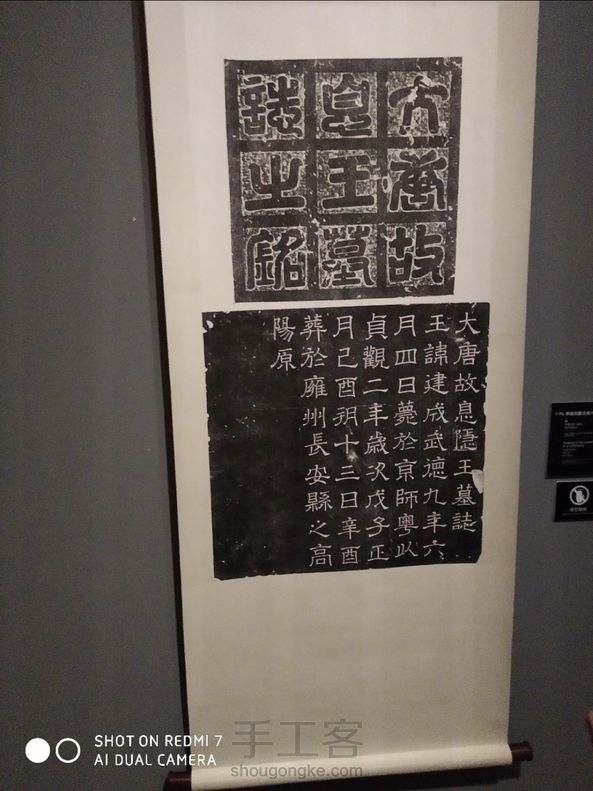 大唐故
息王墓
誌之銘
大唐故息隱王墓誌
王諱建成武德九年六
月四日薨於京師粵以
貞觀二年歲次戊子正
月己酉朔十三日辛酉
葬於雍州長安縣之高
陽原
SHOT ON REDMI 7
AI DUAL CAMERA
手工客
shougongke.com